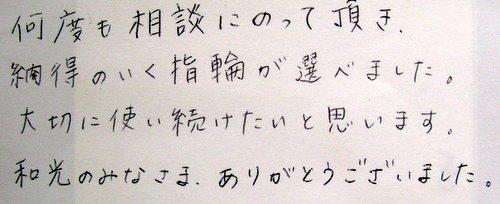 何度も相談にのって頂き、
納得のいく指輪が選べました。
大切に使い続けたいと思います。
和光のみなさま、ありがとうございました。